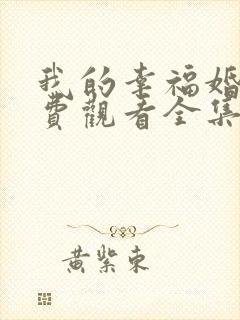 我的幸福婚
費觀看全集
黃紫東